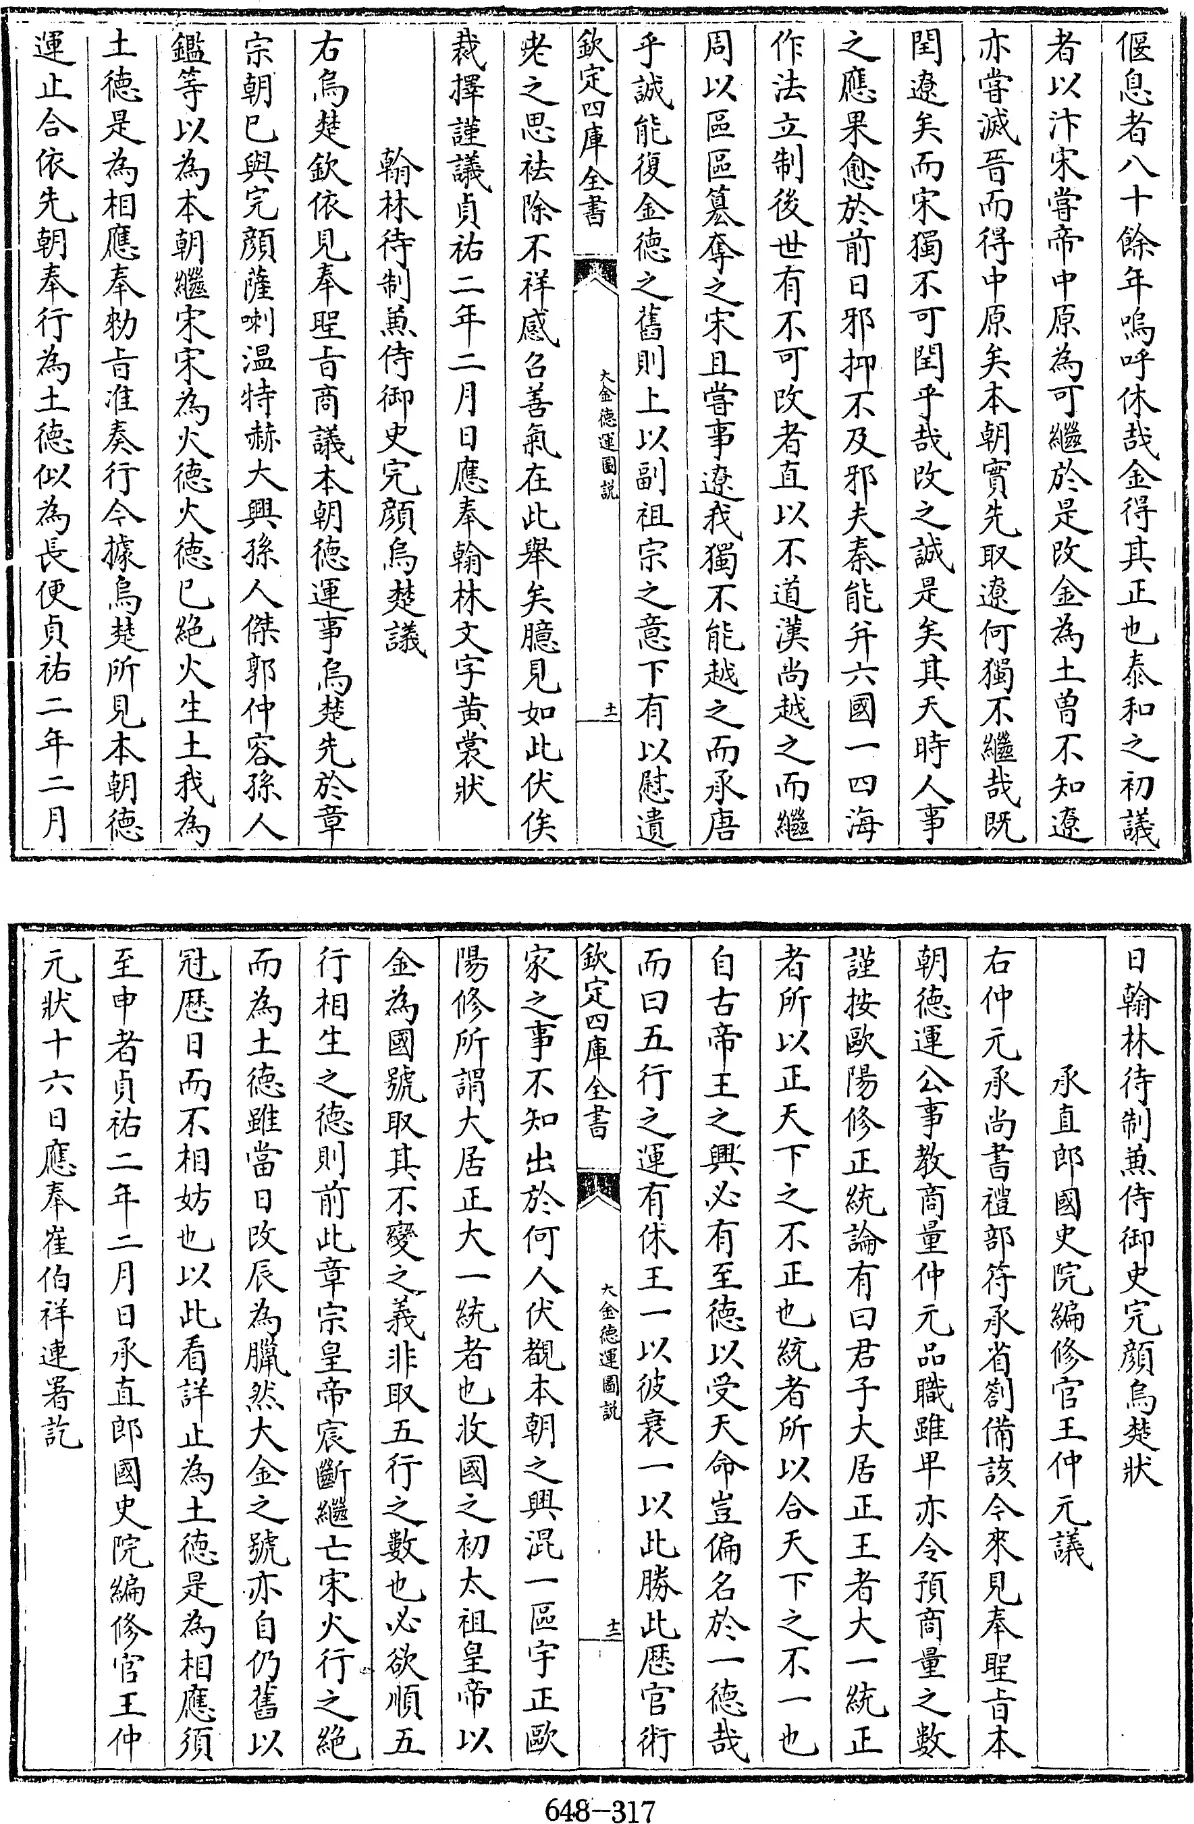 偃息者八十餘年嗚呼休哉金得其正也泰和之初議
者以汴宋嘗帝中原為可繼於是改金為土曽不知遼
亦嘗滅晉而得中原矣本朝實先取遼何獨不繼哉既
閏遼矣而宋獨不可閏乎哉改之誠是矣其天時人事
之應果愈於前日邪抑不及邪夫秦能并六國一四海
作法立制後世有不可改者直以不道漢尚越之而繼
周以區區簒奪之宋且嘗事遼我獨不能越之而承唐
乎誠能復金德之舊則上以副祖宗之意下有以慰遺
欽定四庫全書
大金德運圖説
十一
老之思祛除不祥感召善氣在此舉矣臆見如此伏俟
裁擇謹議貞祐二年二月日應奉翰林文字黄裳狀
翰林待制兼侍御史完顔烏楚議
右烏楚欽依見奉聖旨商議本朝德運事烏楚先於章
宗朝已與完顔薩喇温特赫大興孫人傑郭仲容孫人
鑑等以為本朝繼宋宋為火德火德已絶火生土我為
土德是為相應奉勑旨准奏行今據烏楚所見本朝德
運止合依先朝奉行為土德似為長便貞祐二年二月
日翰林待制兼侍御史完顔烏楚狀
承直郎國史院編修官王仲元議
右仲元承尚書禮部符承省劄備該今來見奉聖旨本
朝德運公事教商量仲元品職雖卑亦令預商量之數
謹按歐陽修正統論有曰君子大居正王者大一統正
者所以正天下之不正也統者所以合天下之不一也
自古帝王之興必有至德以受天命豈偏名於一德哉
而曰五行之運有休王一以彼衰一以此勝此厯官術
欽定四庫全書
大金德運圖説
十二
家之事不知出於何人伏覩本朝之興混一區宇正歐
陽修所謂大居正大一統者也收國之初太祖皇帝以
金為國號取其不變之義非取五行之數也必欲順五
行相生之德則前此章宗皇帝宸斷繼亡宋火行之絶
而為土德雖當日改辰為臘然大金之號亦自仍舊以
冠厯日而不相妨也以此看詳止為土德是為相應須
至申者貞祐二年二月日承直郎國史院編修官王仲
元狀十六日應奉崔伯祥連署訖
648-317